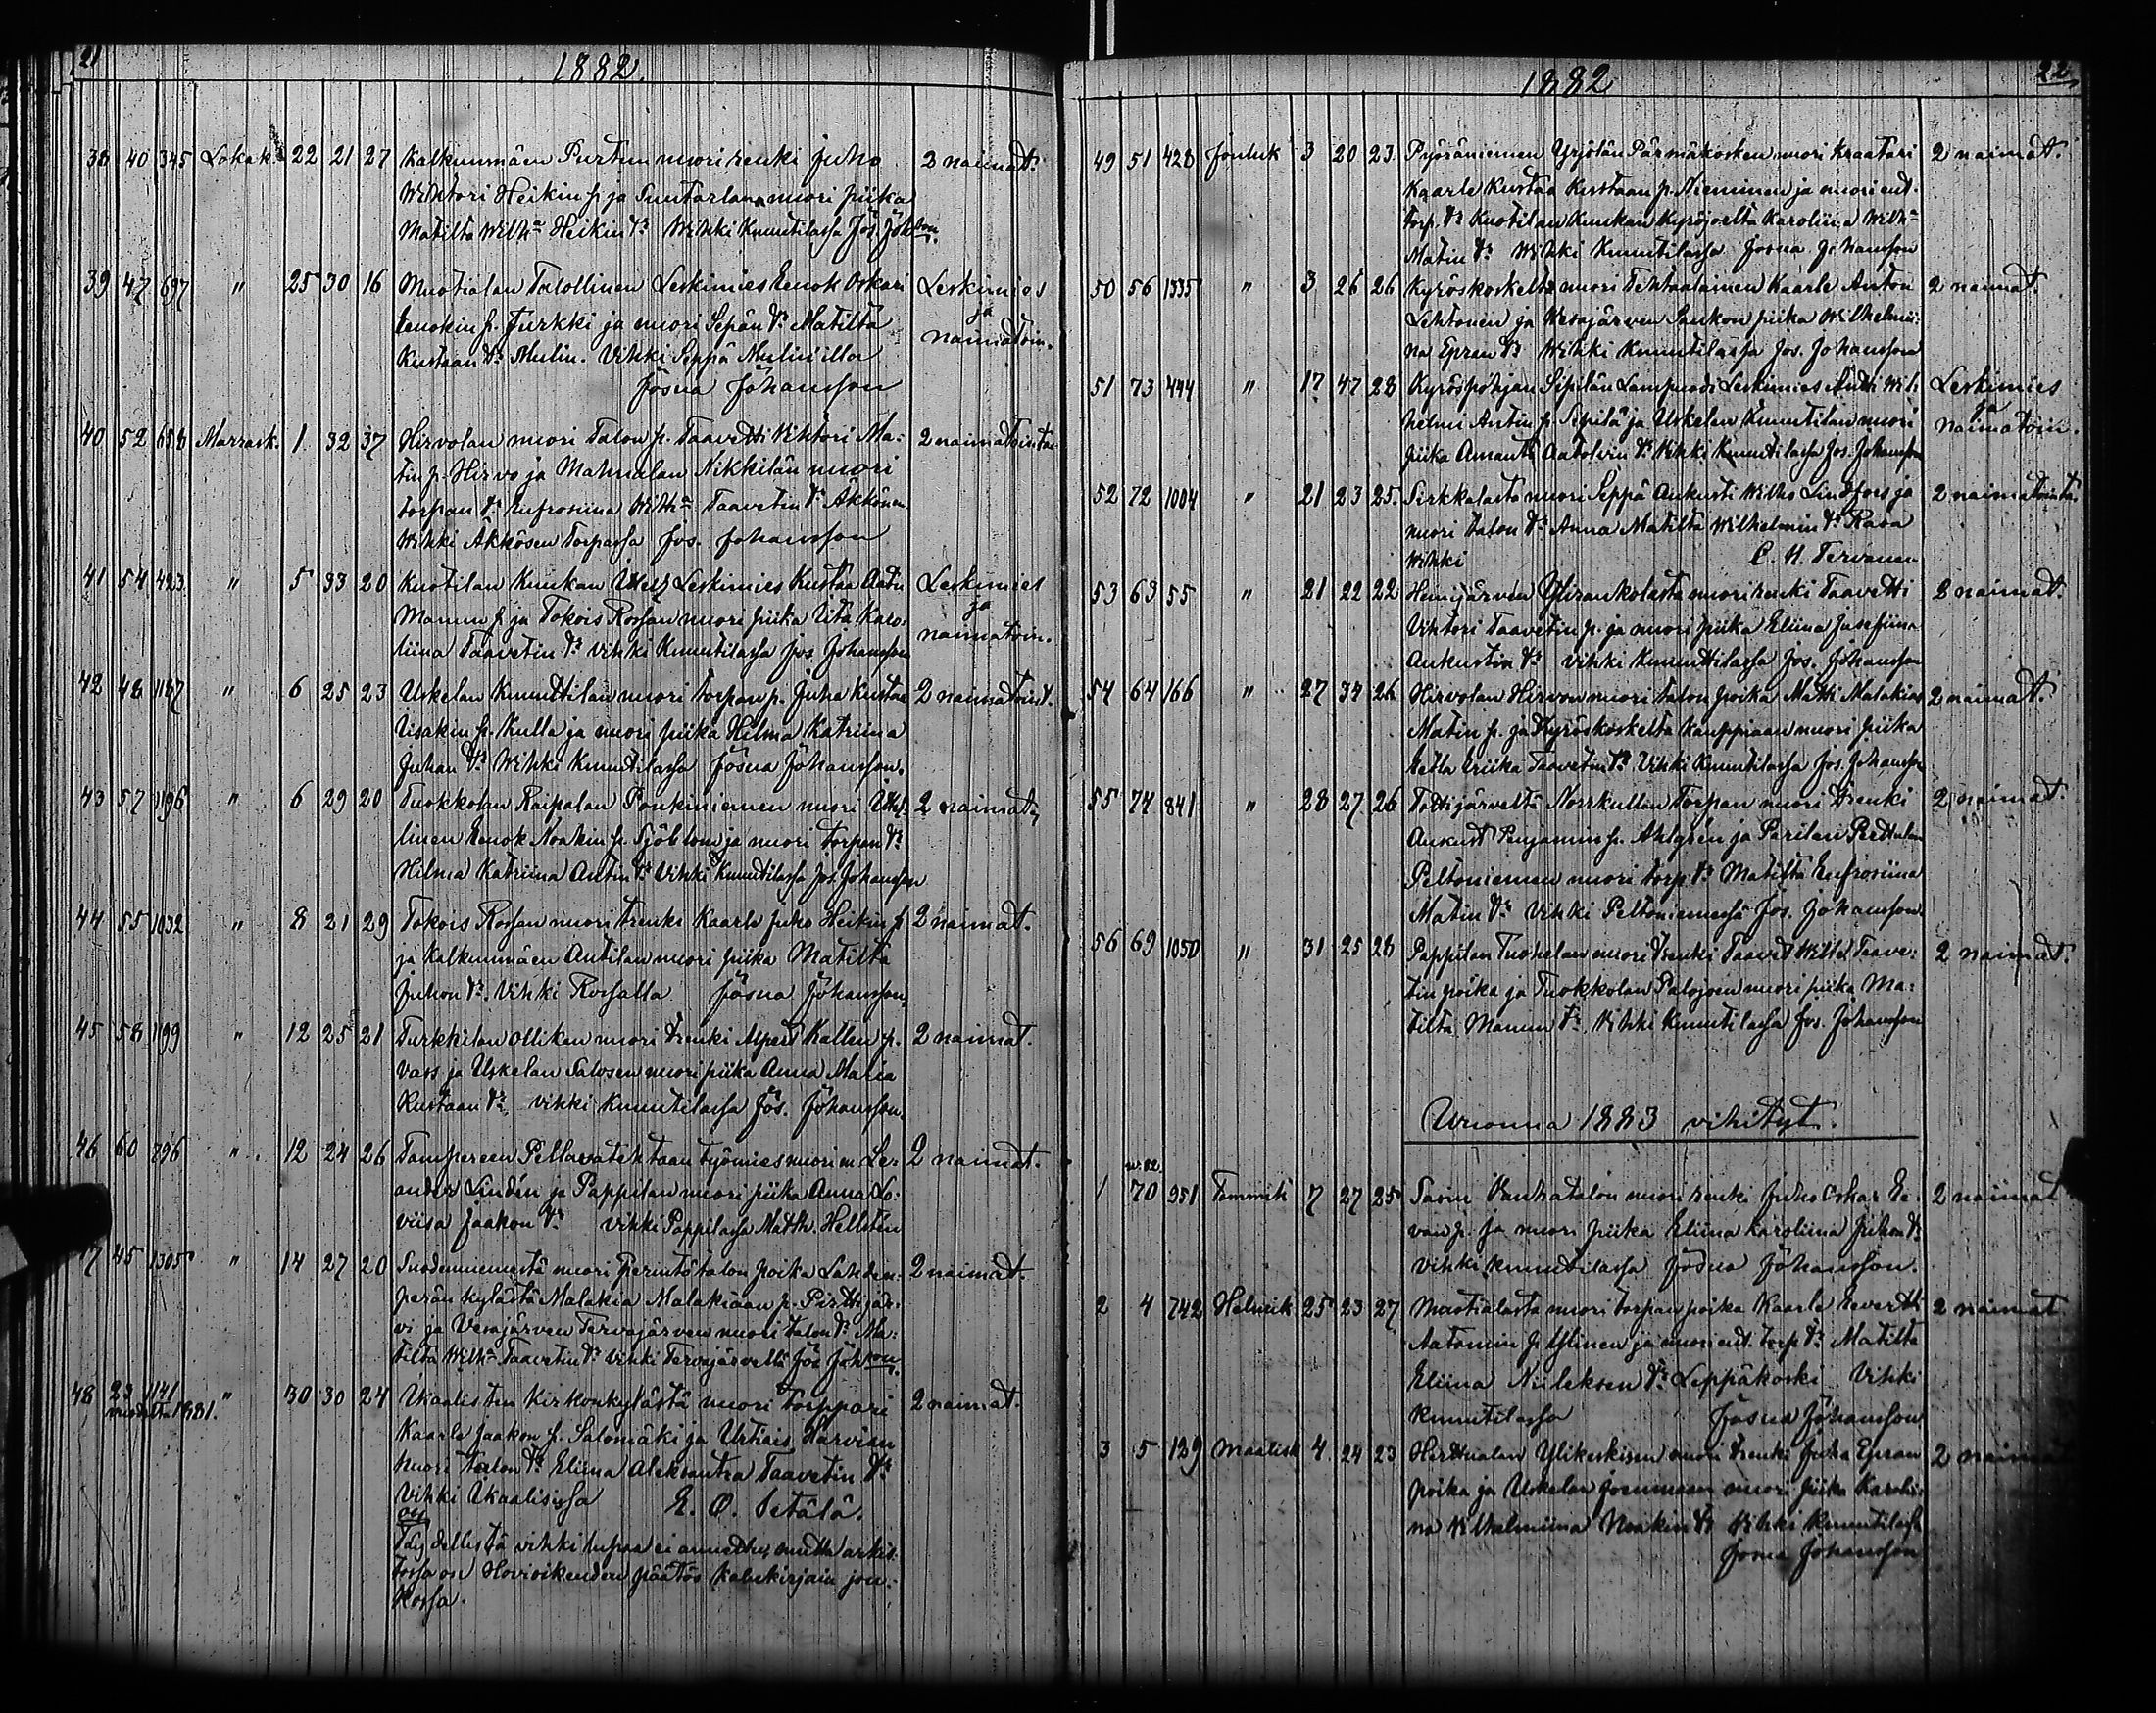 21
1882.
38 40 345 Lokak. 22 21 27 Kalkunmäen Purtun nuori renki Juho 2 naimat.
Wihtori Heikin p. ja Suntarlan nuori piika
Matilta Wilh:a Heikin tr. Wihki Knuutilassa Jos. Joh:son.
39 47 697 " 25 30 16 Muotialan Talollinen Leskimies Eenok Oskari Leskimies
Eenokin p. Turkki ja nuori Sepän tr. Matilta ja
Kustaan tr. Mulin. Vihki Seppä Mulinilla naimatoin.
Josua Johansson
40 52 658 Marrask. 1 32 37 Hirvolan nuori Talon p. Taavetti Vihtori Ma= 2 naimatointa
tin p. Hirvo ja Mahnalan Nikkilän nuori
torpan tr. Eufrosiina Wilh:a Taavetin tr. Äkkönen
Wihki Äkkösen Torpassa Jos. Johansson
41 54 423 " 5 33 20 Kuotilan Kuukan Leskimies Kustaa Leskimies
Manun p. ja Tokois Rossan nuori piika Karo= ja
liina Taavetin tr. vihki Knuutilassa Jos. Johansson naimatoin.
42 48 1187 " 6 25 23 Uskelan Knuuttilan nuori torpan p. Juha Kustaa 2 naimatoint.
Iisakin p. Kulla ja nuori piika Hilma Katriina
Juhan tr. Wihki Knuutilassa Josua Johansson.
43 57 1196 " 6 29 20 Tuokkolan Raipalan Ponkiniemen nuori 2 naimat.
linen Eenok Noakin p. Sjöblom ja nuori torpan tr.
Hilma Katriina Antin tr. Vihki Knuutilassa Jos. Johansson
44 55 1032 " 8 21 29 Tokois Rossan nuori trenki Kaarle Juho Heikin p. 2 naimat.
ja Kalkunmäen Antilan nuori piika Matilta
Juhon tr. Vihki Rossalla Josua Johansson
45 58 1199 " 12 25 21 Turkkilan Ollikan nuori trenki Alpert Kallen p. 2 naimat.
Vass ja Uskelan Salosen nuori piika Anna Maria
Kustaan tr. vihki Knuutilassa Jos. Johansson.
46 60 796 " 12 24 26 Tampereen Pellavatehtaan työmies nuori m. Le= 2 naimat.
ander Lindén ja Pappilan nuori piika Anna Lo=
viisa Jaakon tr. vihki Pappilassa Matth. Hellstén
47 45 1305 " 14 27 20 Suodenniemestä nuori Perintötalon poika Lahden= 2 naimat.
perän kylästä Malakia Malakiaan p. Pirttijär=
vi ja Vesajärven Tervajärven nuori talon tr. Ma=
tilta Wilh:a Taavetin tr. Vihki Tervajärvellä Jos. Joh:son
48 23 1141 " 30 30 24 Ikaalisten Kirkonkylästä nuori Torppari 2 naimat.
vuodelta 1881.
Kaarle Jaakon p. Salomäki ja Urtiais Harvian
nuori talon tr. Eliina Aleksantra Taavetin tr.
Vihki Ikaalisissa E. O. Setälä.
Täydellistä vihki lupaa ei annettu, mutta arkis=
tossa on Hovioikeuden päätös kalukirjain jou=
kossa.
22
1882
49 51 428 Jouluk 3 20 23 Pyöräniemen Yrjölän Pärmäkosken nuori Kraatari 2 naimat.
Kaarle Kustaa Kustaan p. Nieminen ja nuori ent.
torp. tr. Kuotilan Kuukan Kyröjoelta Karoliina Wilh:a
Matin tr. Wihki Knuutilassa Josua Johansson
50 56 1335 " 3 26 26 Kyröskoskelta nuori Tehtaalainen Kaarle Anton 2 naimat.
Lehtonen ja Vesajärven Sankon piika Wilhelmii=
na Epran tr. Wihki Knuutilassa Jos. Johansson
51 73 444 " 17 47 28 Kyröspohjan Sipilän Lampuodi Leskimies Antti Wil= Leskimies
helmi Antin p. Sipilä ja Uskelan Knuutilan nuori ja
piika Amanta Aatolvin tr. Vihki Knuutilassa Jos. Johansson naimatoin.
52 72 1004 " 21 23 25 Sirkkalasta nuori Seppä Aukusti Wilho Lindfors ja 2 naimatointa.
nuori talon tr. Anna Matilta Wilhelmin tr. Rava
Wihki C. N. Tervonen
53 63 55 " 21 22 22 Heinijärven Ylirankolasta nuori renki Taavetti 2 naimat.
Vihtori Taavetin p. ja nuori piika Eliina Josefiina
Aukustin tr. vihki Knuuttilassa Jos. Johansson
54 64 166 " 27 34 26 Hirvolan Hirvon nuori talon poika Matti Malakias 2 naimat.
Matin p. ja Kyröskoskelta Kauppiaan nuori piika
Hetla Eriika Taavetin tr. Vihki Knuutilassa Jos. Johansson
55 74 841 " 28 27 26 Tottijärveltä Norrkullan Torpan nuori trenki 2 naimat.
Aukust Penjamin p. Ahlgrén ja Parilan Perttulan
Peltoniemen nuori torp. tr. Matilta Eufrosiina
Matin tr. Vihki Peltoniemessä Jos. Johansson
56 69 1050 " 31 25 28 Pappilan Tuohelan nuori trenki Taavet Wilhel. Taave= 2 naimat.
tin poika ja Tuokkolan Palojoen nuori piika Ma=
tilta Manun tr. Vihki Knuutilassa Jos. Johansson
Vuonna 1883 vihityt.
v. 82
1 70 951 Tammik 7 27 25 Sasin Vanhatalon nuori renki Juho Oskar Ee= 2 naimat
van p. ja nuori piika Eliina Karoliina Juhon tr.
vihki Knuutilassa Josua Johansson.
2 4 742 Helmik 25 23 27 Muotialasta nuori torpan poika Kaarle Eevertti 2 naimat
Aatamin p. Ylinen ja nuori ent. torp. tr. Matilta
Eliina Niileksen tr. Leppäkoski Vihki
Knuutilassa Josua Johansson
3 5 139 Maalisk 4 24 23 Herttualan Ylikeskisen nuori trenki Juha Epran 2 naimat
poika ja Uskelan Joenmaan nuori piika Karolii=
na Wilhelmiina Noakin tr. Vihki Knuutilassa
Josua Johansson